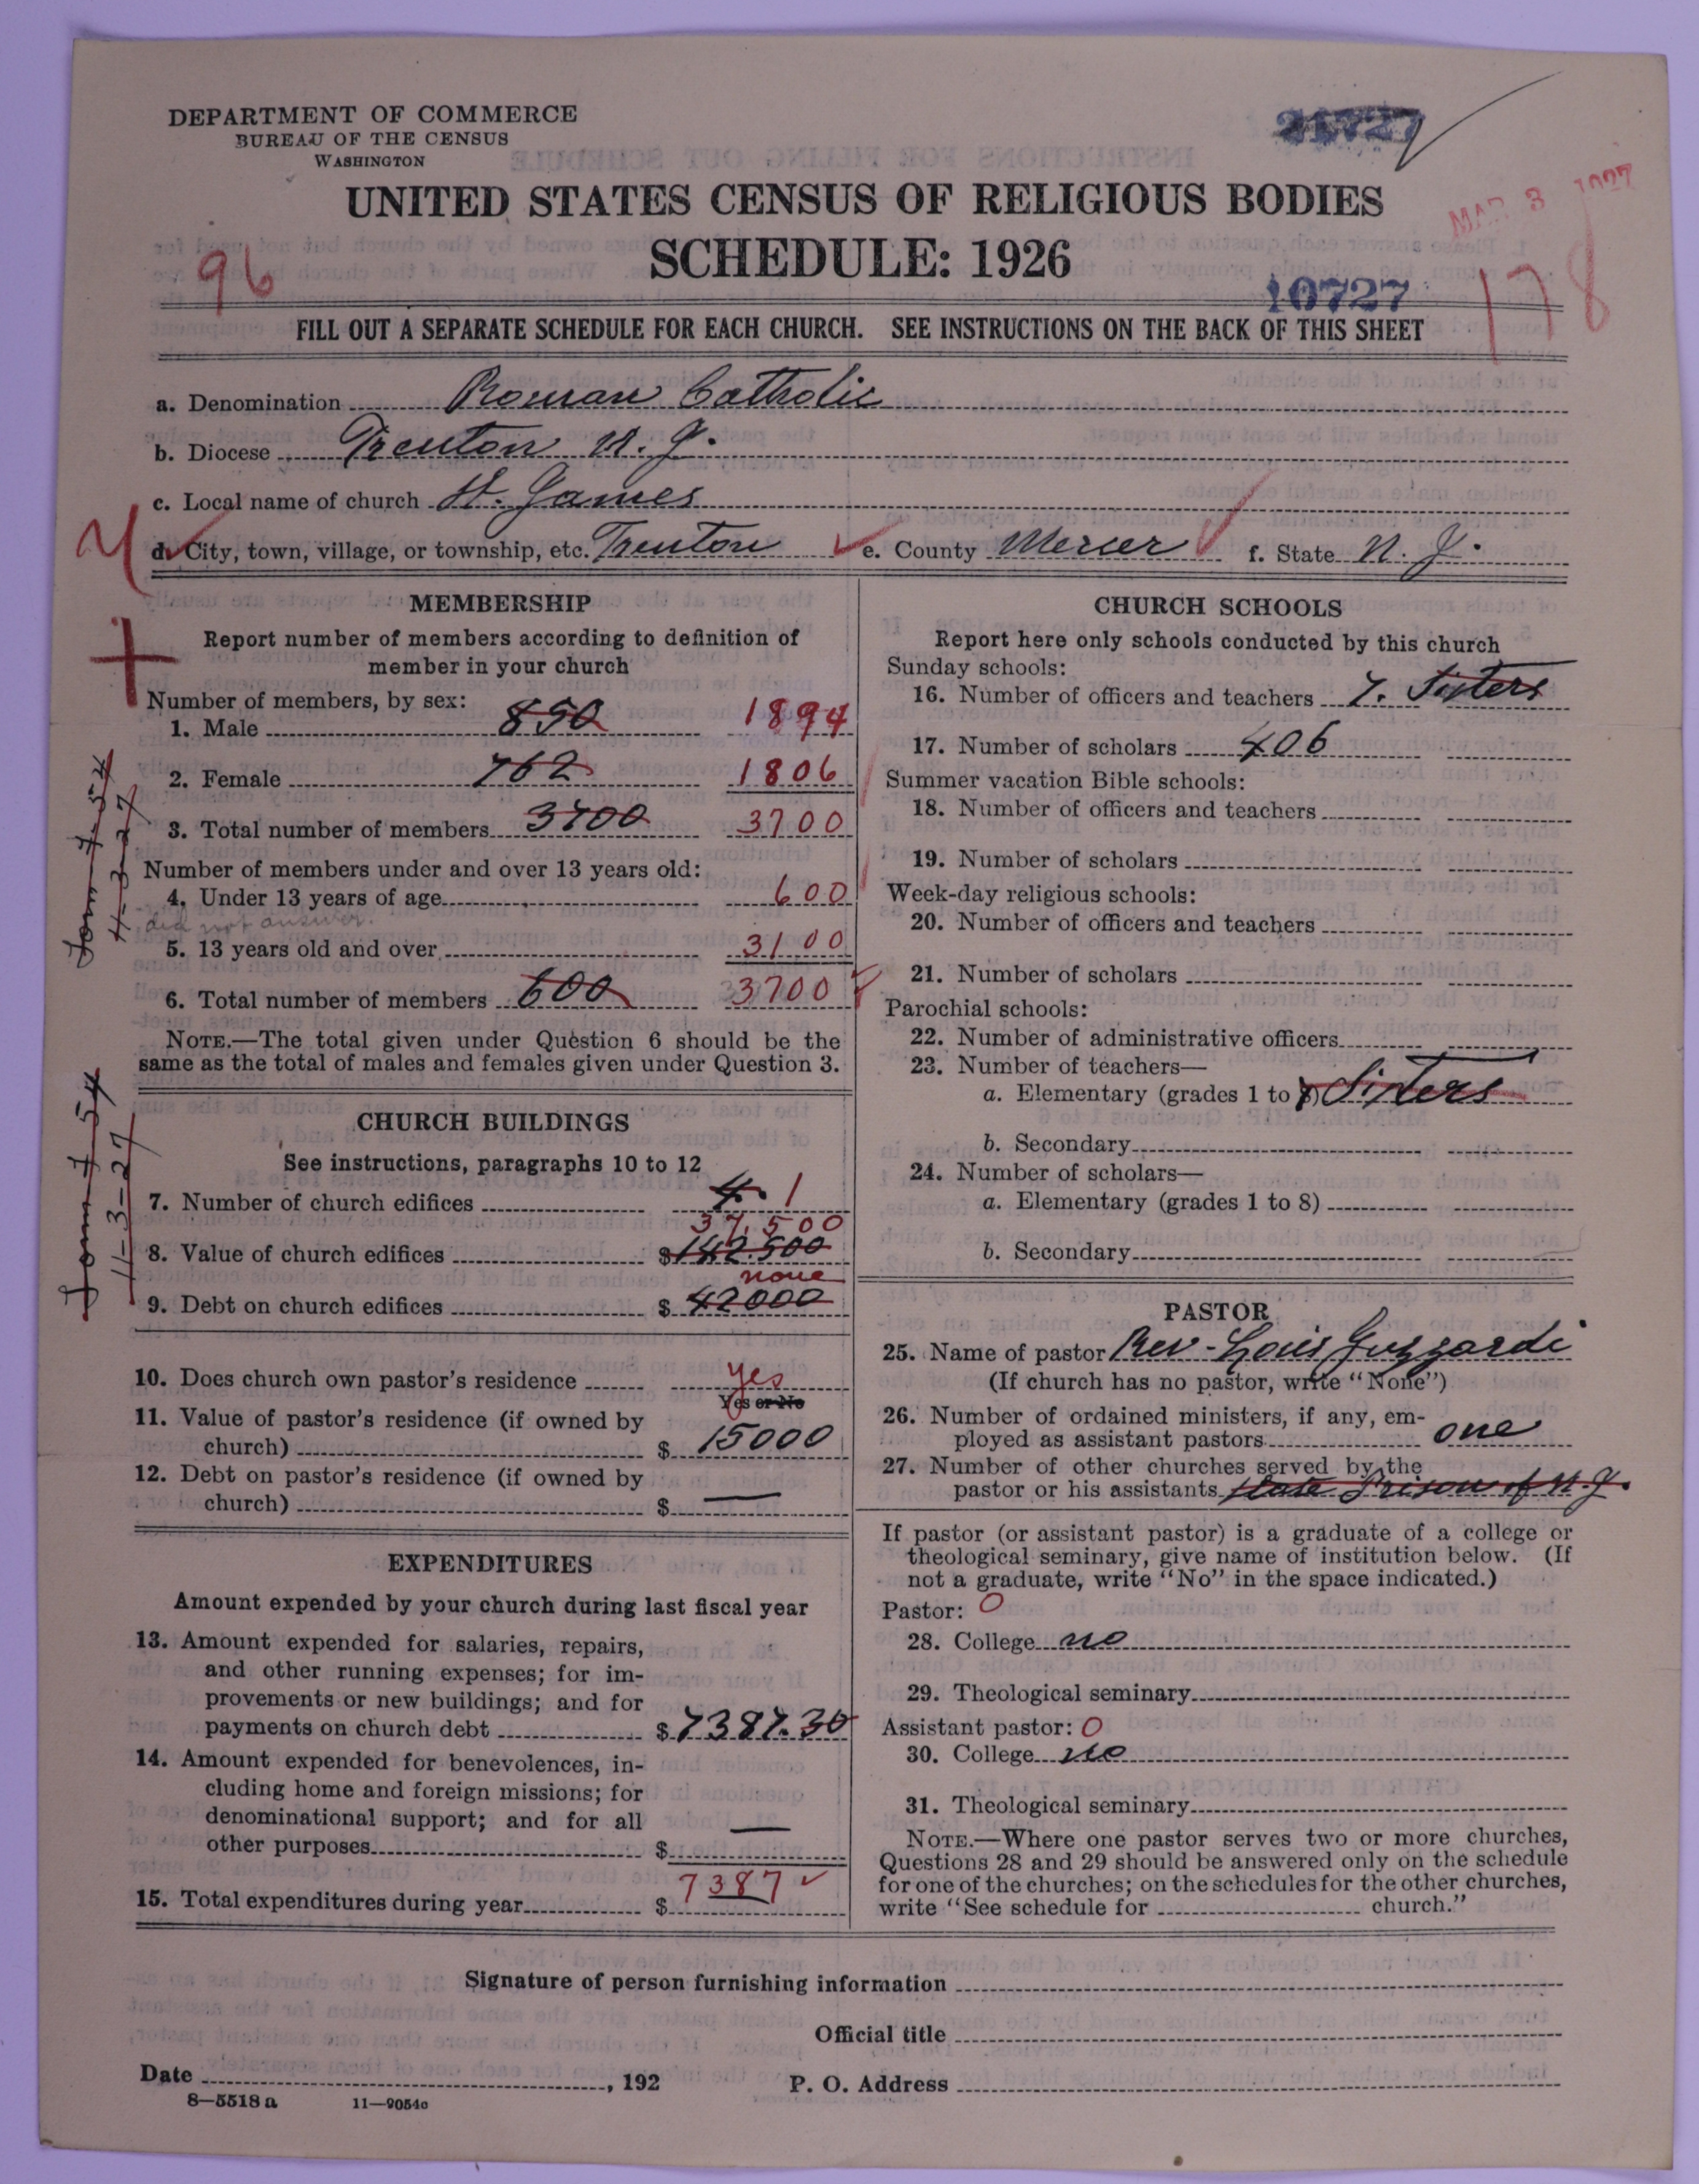 DEPARTMENT OF COMMERCE
BUREAU OF THE CENSUS
WASHINGTON
UNITED STATES CENSUS OF RELIGIOUS BODIES
MAR 3 1927
SCHEDULE: 1926
96
178
10727
FILL OUT A SEPARATE SCHEDULE FOR EACH CHURCH. SEE INSTRUCTIONS ON THE BACK OF THIS SHEET
a. Denomination Roman Catholic
b. Diocese Trenton N. J.
c. Local name of church St. James
d. City, town, village, or township, etc. Trenton e. County Mercer f. State N. J.
MEMBERSHIP
Report number of members according to definition of
member in your church
Number of members, by sex:
1. Male 850 1894
2. Female 762 1806
3. Total number of members 3700 3700
Number of members under and over 13 years old:
4. Under 13 years of age 600
did not answer.
5. 13 years old and over 3100
6. Total number of members 600 3700
NOTE.—The total given under Question 6 should be the
same as the total of males and females given under Question 3.
Form 7-54
4-3-27
CHURCH BUILDINGS
See instructions, paragraphs 10 to 12
7. Number of church edifices 4. 1
37,500
8. Value of church edifices $142.500
none
9. Debt on church edifices $ 42000
Form 7-54
11-3-27
10. Does church own pastor's residence yes
Yes or No
11. Value of pastor's residence (if owned by
church) $ 15000
12. Debt on pastor's residence (if owned by
church) $ —
EXPENDITURES
Amount expended by your church during last fiscal year
13. Amount expended for salaries, repairs,
and other running expenses; for im-
provements or new buildings; and for
payments on church debt $ 7387.30
14. Amount expended for benevolences, in-
cluding home and foreign missions; for
denominational support; and for all
other purposes $ —
15. Total expenditures during year $ 7387
CHURCH SCHOOLS
Report here only schools conducted by this church
Sunday schools:
16. Number of officers and teachers 7. Sisters
17. Number of scholars 406
Summer vacation Bible schools:
18. Number of officers and teachers
19. Number of scholars
Week-day religious schools:
20. Number of officers and teachers
21. Number of scholars
Parochial schools:
22. Number of administrative officers
23. Number of teachers—
a. Elementary (grades 1 to 8) Sisters
b. Secondary
24. Number of scholars—
a. Elementary (grades 1 to 8)
b. Secondary
PASTOR
25. Name of pastor Rev. Louis Guzzardi
(If church has no pastor, write "None")
26. Number of ordained ministers, if any, em-
ployed as assistant pastors one
27. Number of other churches served by the
pastor or his assistants State Prison of N. J.
If pastor (or assistant pastor) is a graduate of a college or
theological seminary, give name of institution below. (If
not a graduate, write "No" in the space indicated.)
Pastor: O
28. College no
29. Theological seminary
Assistant pastor: O
30. College no
31. Theological seminary
NOTE.—Where one pastor serves two or more churches,
Questions 28 and 29 should be answered only on the schedule
for one of the churches; on the schedules for the other churches,
write "See schedule for church."
Signature of person furnishing information
Official title
Date , 192 P. O. Address
8—5518 a 11—9054c